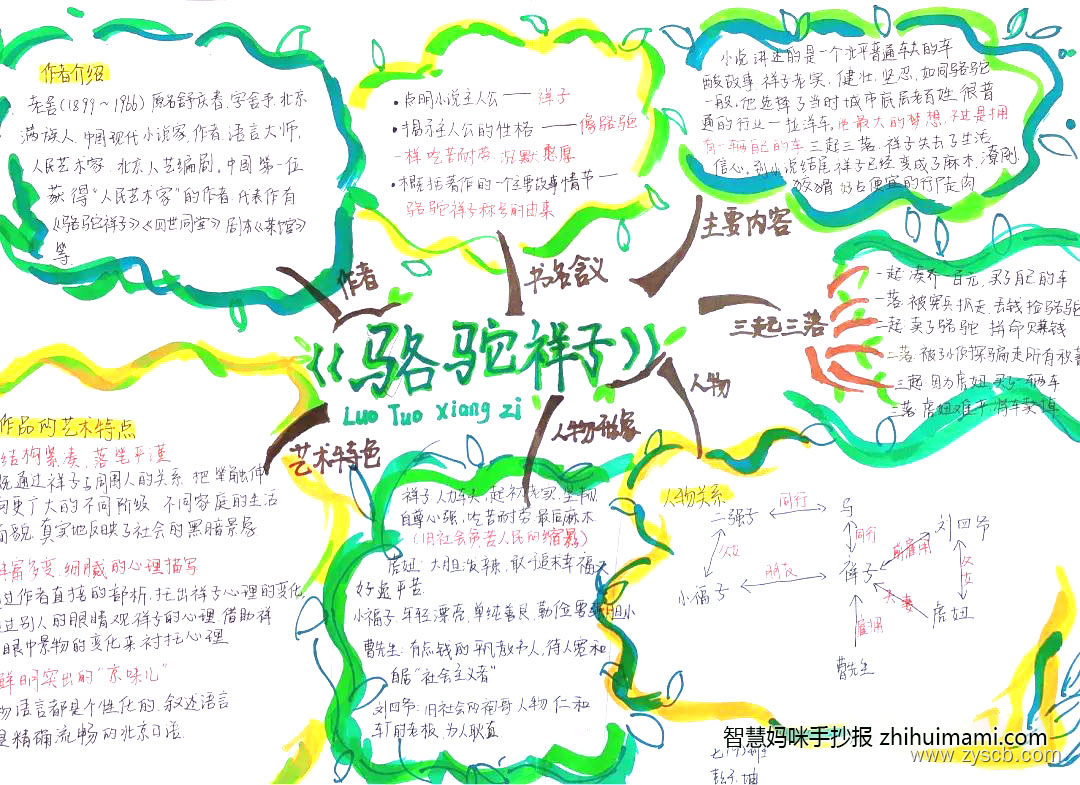 作者介绍
老舍(1899~1966)原名舒庆春,字舍予,北京
满族人.中国现代小说家,作者.语言大师,
人民艺术家.北京人艺编剧,中国第一位
获得"人民艺术家"的作者.代表作有
《骆驼祥子》《四世同堂》剧本《茶馆》
等.
•点明小说主人公——祥子
•揭示主人公的性格——像骆驼
一样吃苦耐劳.沉默憨厚
•概括著作的一个主要故事情节—
骆驼祥子称号的由来
小说讲述的是一个北平普通车夫的车
酸故事.祥子老实、健壮、坚忍,如同骆驼
一般,他选择了当时城市底层老百姓很普
通的行业—拉洋车,他最大的梦想,不过是拥
有一辆自己的车.三起三落,祥子失去了生活
信心,到小说结尾祥子已经变成了麻木,潦倒
狡猾 好占便宜的行尸走肉
作者
书名含义
主要内容
三起三落
一起:凑齐一百元,买了自己的车
一落:被宪兵抓走.丢钱捡骆驼
二起:卖了骆驼 拼命赚钱
二落:被孙侦探骗走所有积蓄
三起:因为虎妞 买了一辆车
三落:虎妞难产,将车卖掉
《骆驼祥子》
Luo Tuo xiang zi
人物
人物形象
艺术特色
作品的艺术特点
结构紧凑,落笔严谨
通过祥子与周围人的关系.把笔触伸
向更广大的不同阶级 不同家庭的生活
面貌.真实地反映了社会的黑暗景象
丰富多变.细腻的心理描写
过作者直接的部析,托出祥子心理的变化
过别人的眼睛观祥子的心理.借助祥
眼中景物的变化来衬托心理
鲜明突出的"京味儿"
物语言都是个性化的.叙述语言
是精确流畅的北京口语.
祥子:人力车夫,起初老实,坚韧,
自尊心强,吃苦耐劳.最后麻木
(旧社会劳苦人民的缩影)
虎妞:大胆泼辣,敢于追求幸福又
好虚平苦
小福子:年轻漂亮,单纯善良,勤俭 胆小
曹先生:有点钱的平凡教书人,待人宽和
自居"社会主义者"
刘四爷:旧社会的袍哥人物 仁和
车厂的老板,为人耿直
人物关系
二强子
同行
马
刘四爷
父女
同行
前雇用
祥子
朋友
小福子
父女
夫妻
虎妞
雇用
曹先生
智慧妈咪手抄报 zhihuimami.com
www.zyscb.com